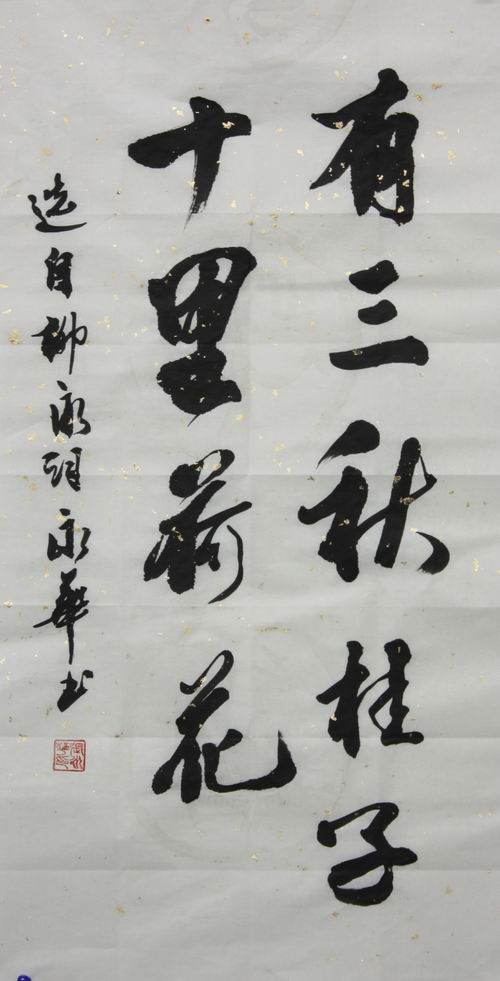 有三秋桂子
十里荷花
选自柳永词永華书